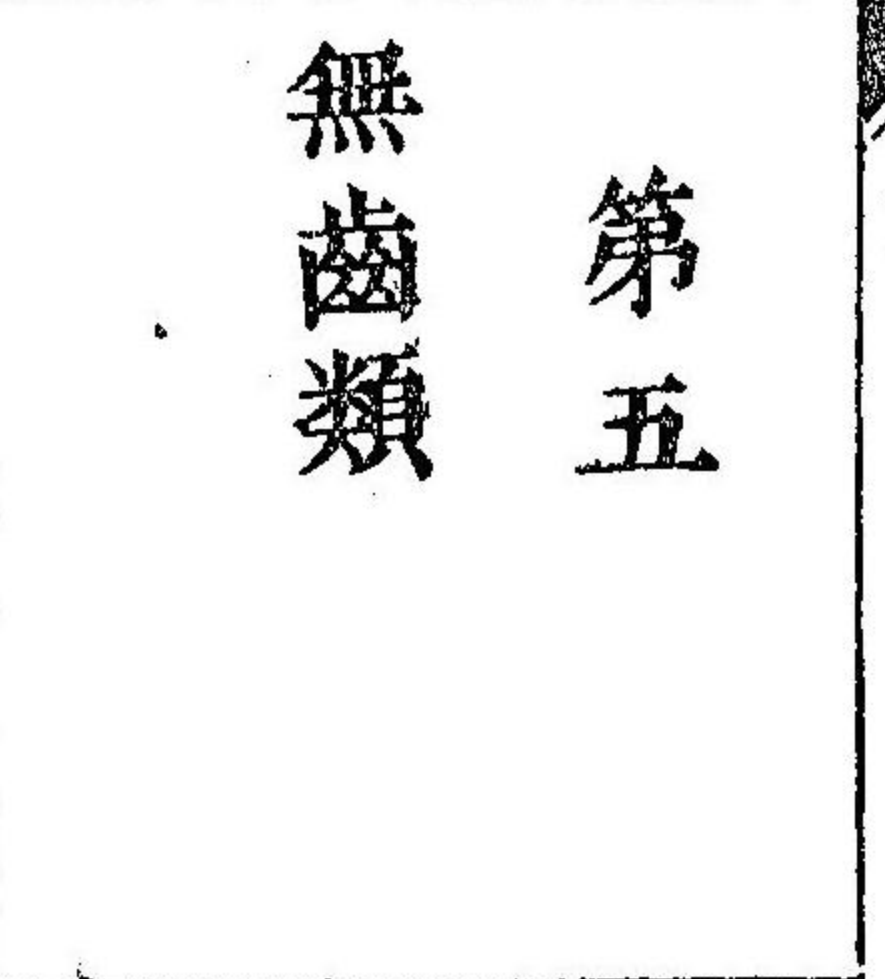 第五
無齒類